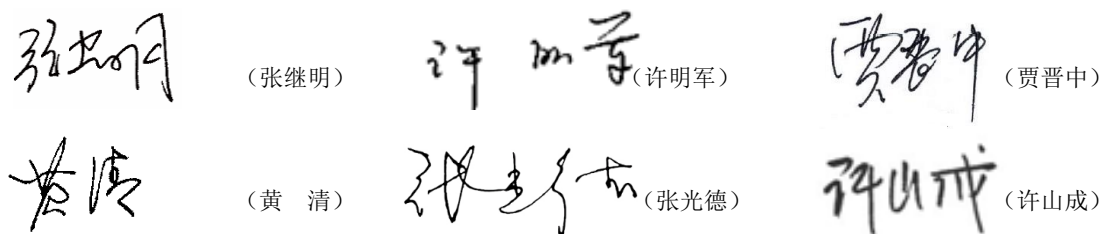 张继明 （张继明） 许明军 （许明军） 贾晋中 （贾晋中）
黄清 （黄　清） 张光德 （张光德） 许山成 （许山成）